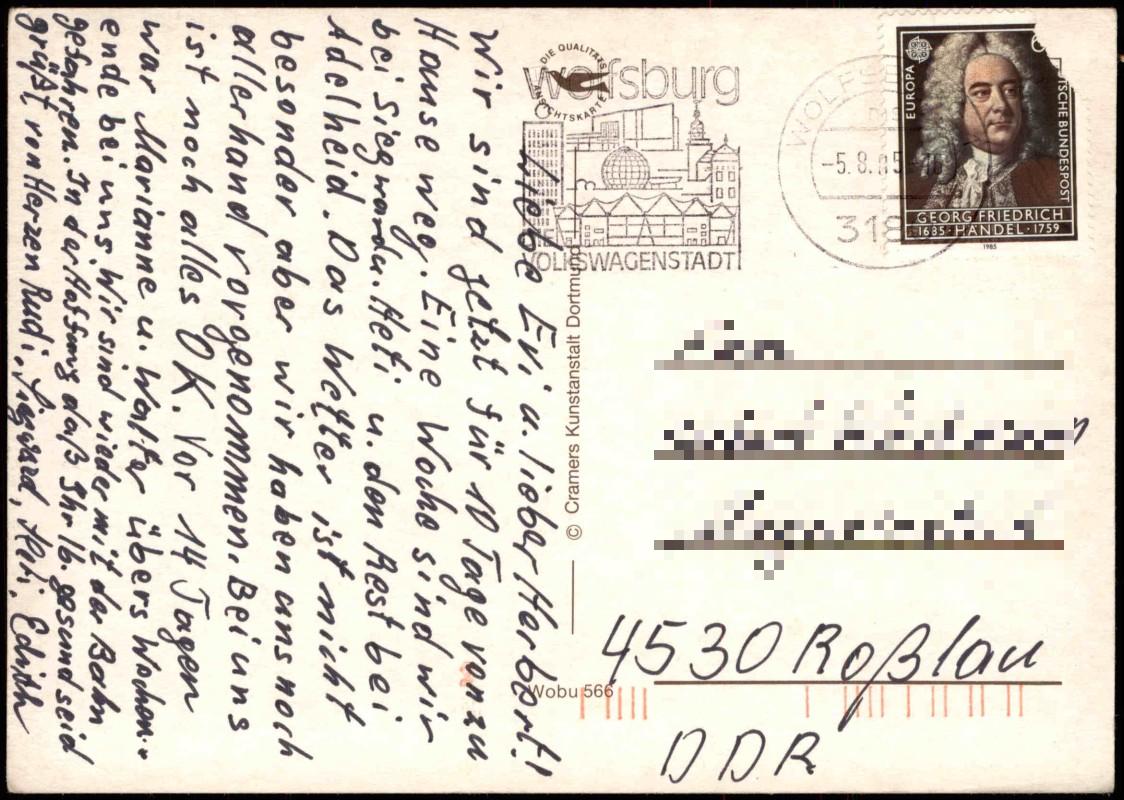 Liebe Evi u. lieber Herbert!
Wir sind jetzt für 10 Tage von zu
Hause weg. Eine Woche sind wir
bei Siegward u. Heti u. den Rest bei
Adelheid. Das Wetter ist nicht
besonder aber wir haben uns noch
allerhand vorgenommen. Bei uns
ist noch alles OK. Vor 14 Tagen
war Marianne u. Walter übers Wochen-
ende bei uns. Wir sind wieder mit der Bahn
gefahren. In der Hoffnung daß Ihr lb. gesund seid
grüßt von Herzen Rudi, Siegward, Heti, Edith
DIE QUALITÄTS
ANSICHTSKARTE
wolfsburg
VOLKSWAGENSTADT
WOLFSB
-5.8.85-16
318
EUROPA
TSCHE BUNDESPOST
GEORG FRIEDRICH
1685 · HÄNDEL · 1759
1985
© Cramers Kunstanstalt Dortmund
Wobu 566
4530 Roßlau
DDR